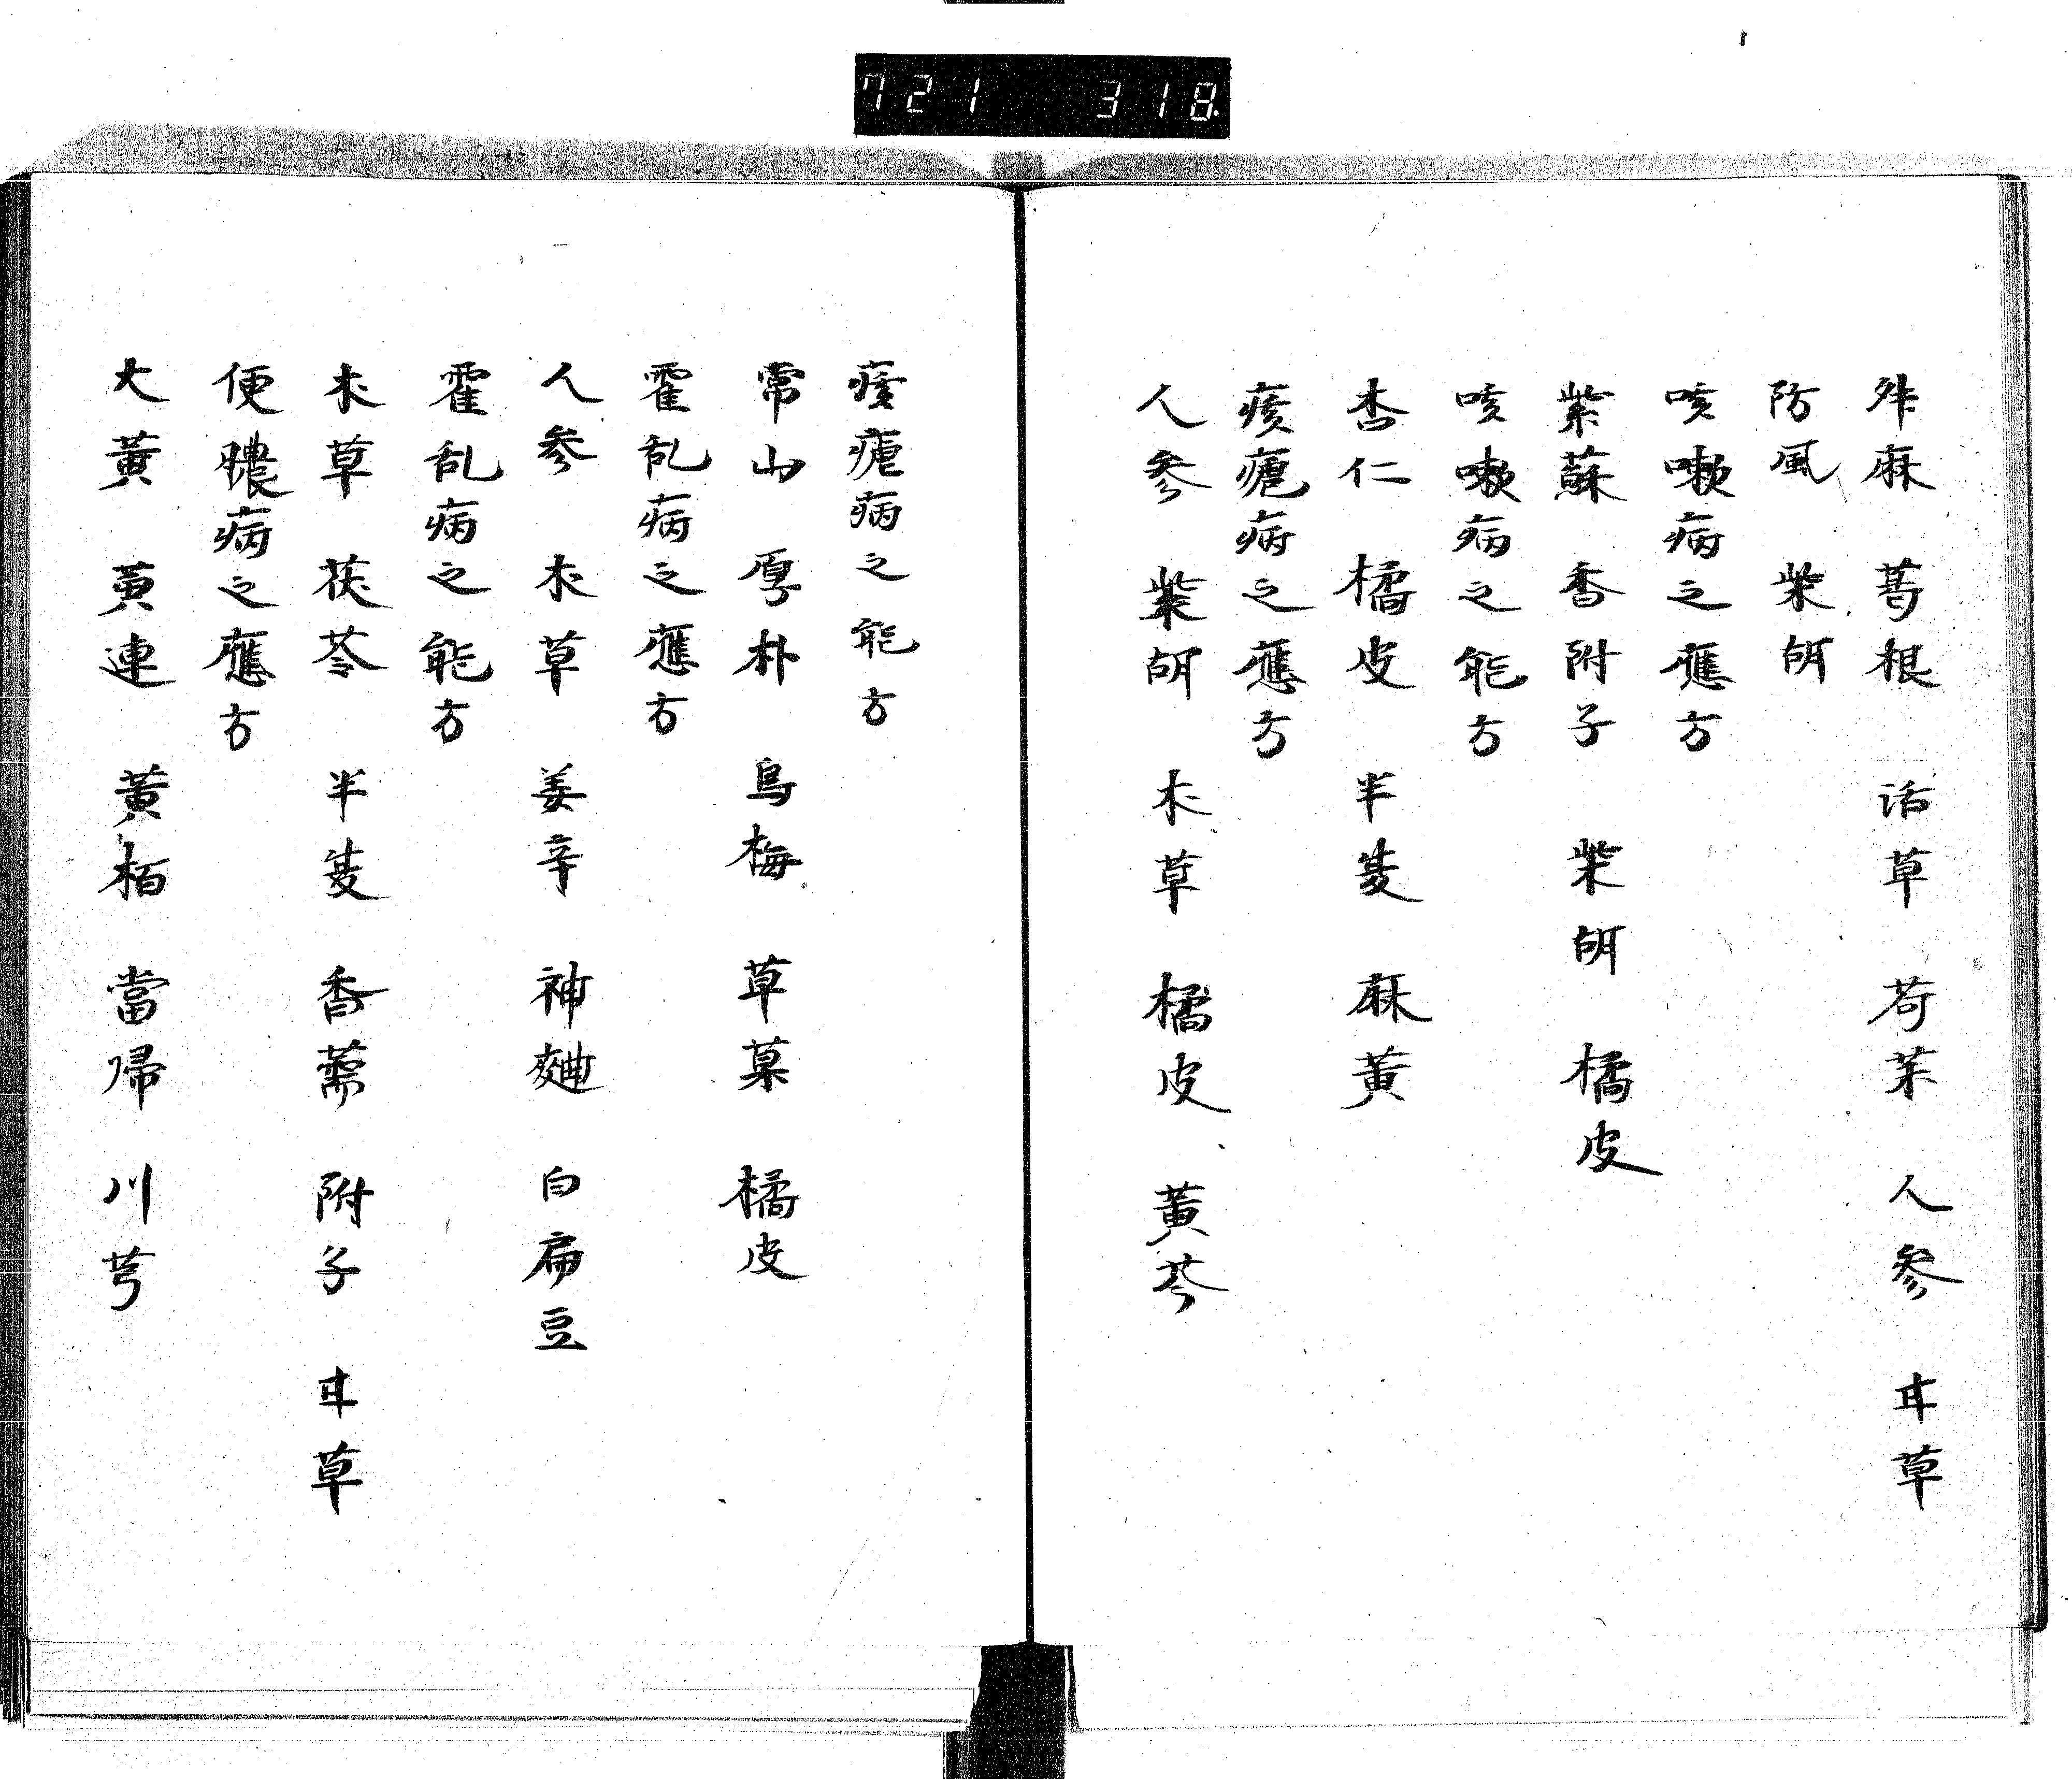 721 318
舛麻 葛根 活草 荷茉 人参 甘草
防風 柴胡
咳嗽病之應方
紫蘇 香附子 柴胡 橘皮
咳嗽病之能方
杏仁 橘皮 半夏 麻黄
痎瘧病之應方
人参 柴胡 朮草 橘皮 黄芩
痎瘧病之能方
常山 厚朴 烏梅 草菓 橘皮
霍乱病之應方
人参 朮草 姜辛 神麯 白扁豆
霍乱病之能方
朮草 茯苓 半夏 香薷 附子 甘草
便膿病之應方
大黄 黄連 黄栢 當帰 川芎